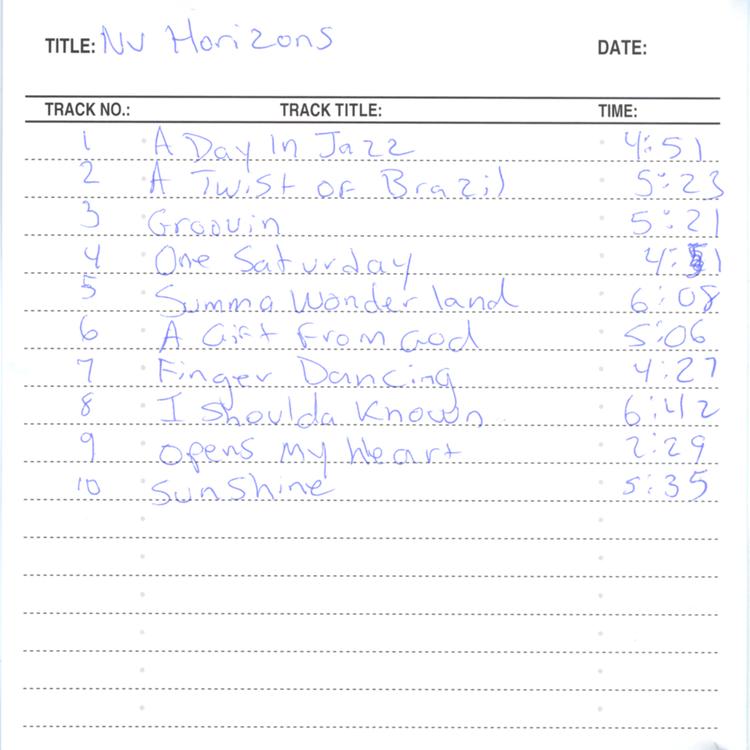 TITLE: NU Horizons DATE:
TRACK NO.: TRACK TITLE: TIME:
1 A Day In Jazz 4:51
2 A Twist of Brazil 5:23
3 Groovin 5:21
4 One Saturday 4:51
5 Summa Wonder land 6:08
6 A Gift From God 5:06
7 Finger Dancing 4:27
8 I Shoulda Known 6:42
9 Opens My heart 2:29
10 SunShine 5:35